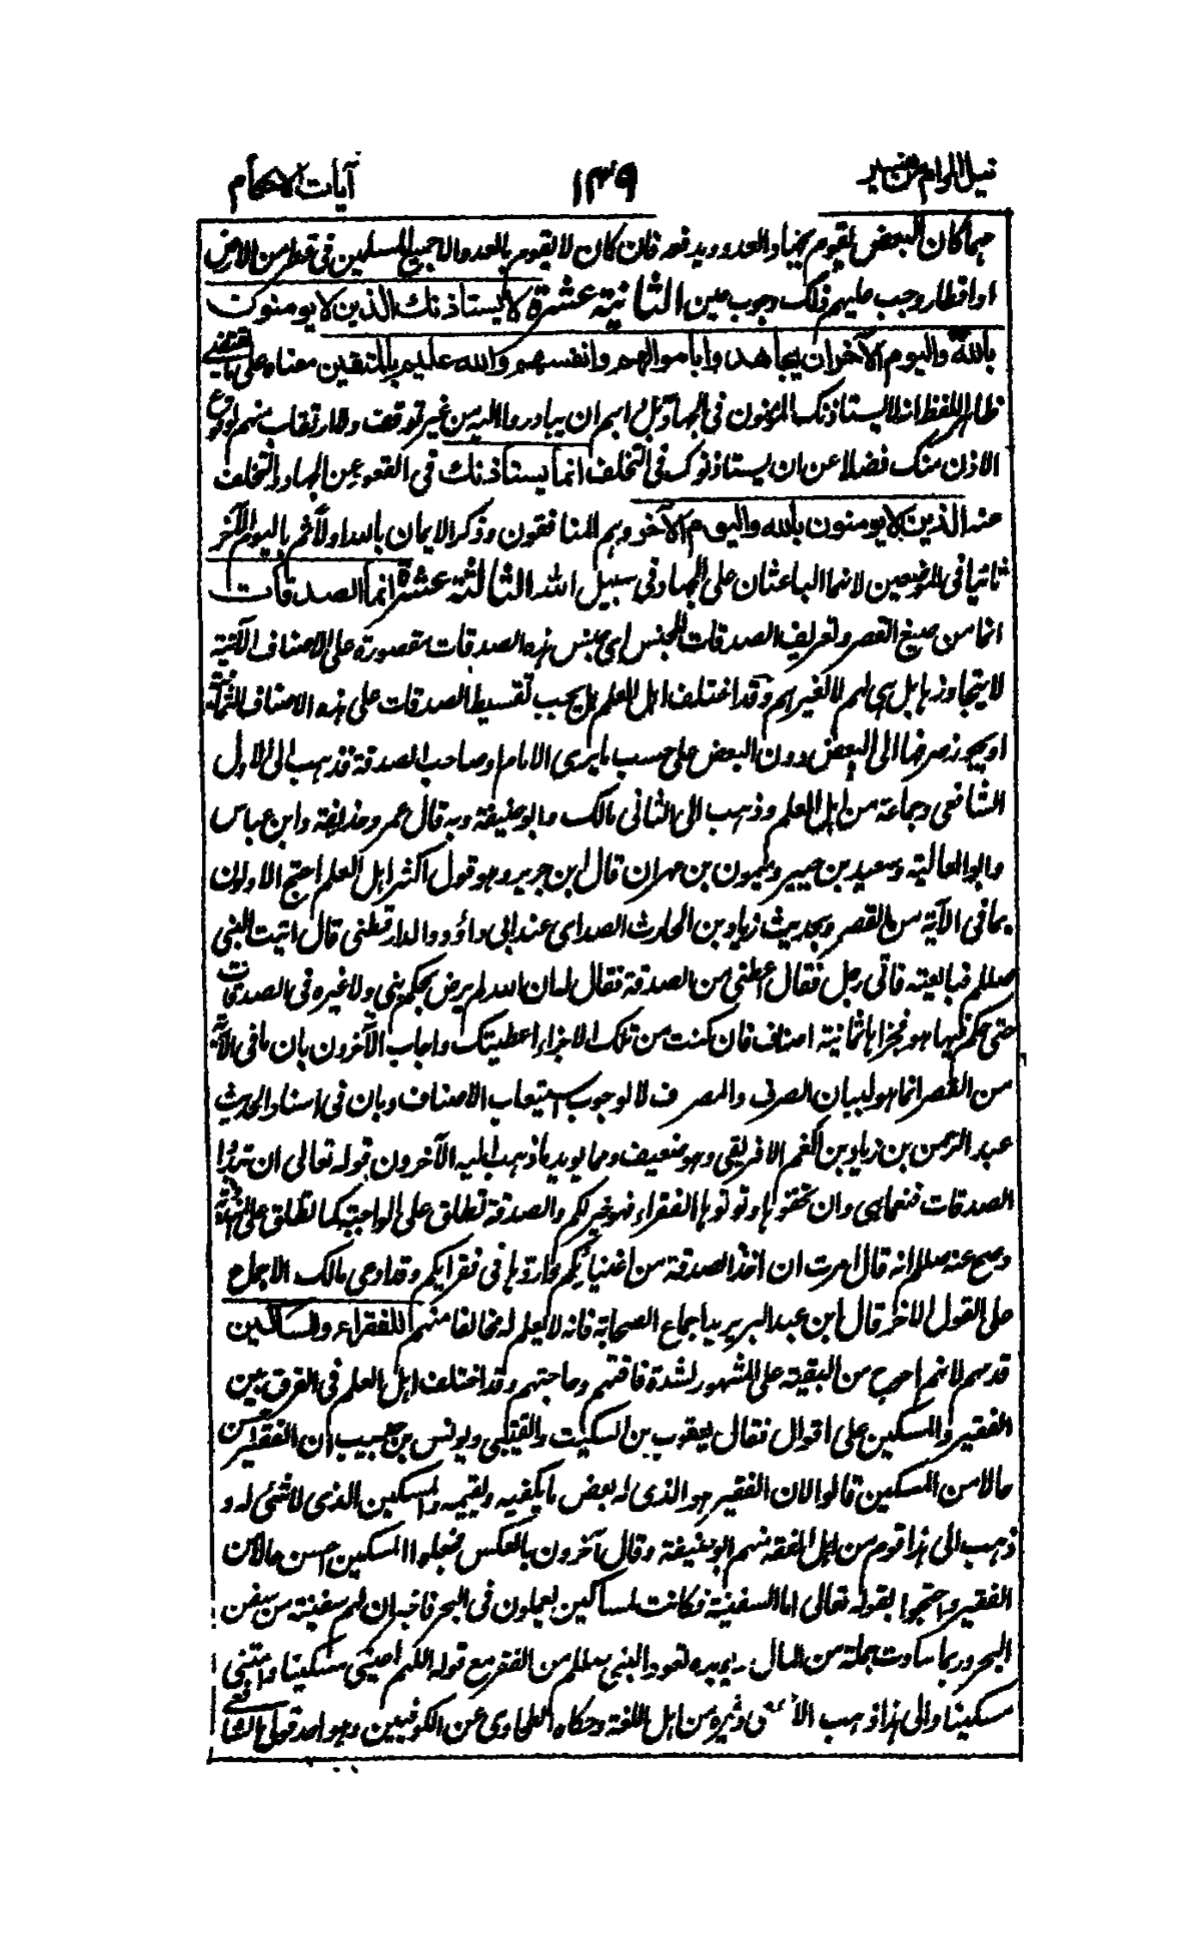 نيل المرام من تفسير ١٣٩ آيات الاحكام
مهما كان البعض يقوم بجهاد العدو ويدفعه فان كان لا يقوم بالعدو الا جميع المسلمين فى قطر من الارض
او اقطار وجب عليهم ذلك وجوب عين الثانية عشرة لا يستاذنك الذين لا يومنون
بالله واليوم الآخر ان يجاهدوا باموالهم وانفسهم والله عليم بالمتقين معناه على ما يقتضيه
ظاهر اللفظ انه لا يستاذنك المومنون فى الجهاد بل دابهم ان يبادروا اليه من غير توقف ولا ارتقاب منهم لوقوع
الاذن منك فضلا عن ان يستاذنوك فى التخلف انما يستاذنك فى القعود عن الجهاد والتخلف
عنه الذين لا يومنون بالله واليوم الآخر وهم المنافقون وذكر الايمان بالله اولا ثم باليوم الآخر
ثانيا فى الموضعين لانهما الباعثان على الجهاد فى سبيل الله الثالثة عشرة انما الصدقات
انما من صيغ القصر وتعريف الصدقات للجنس اى جنس هذه الصدقات مقصورة على الاصناف الآتية
لا يتجاوزها بل هى لهم لا لغيرهم وقد اختلف اهل العلم هل يجب تقسيط الصدقات على هذه الاصناف الثمانية
او يجوز صرفها الى البعض دون البعض على حسب ما يرى الامام او صاحب الصدقة فذهب الى الاول
الشافعى وجماعة من اهل العلم وذهب الى الثانى مالك وابو حنيفة وبه قال عمر وحذيفة وابن عباس
وابو العالية وسعيد بن جبير وميمون بن مهران قال ابن جرير وهو قول اكثر اهل العلم احتج الاولون
بما فى الآية من القصر وبحديث زياد بن الحارث الصداى عند ابى داؤد والدارقطنى قال اتيت النبى
صللم فبايعته فاتى رجل فقال اعطنى من الصدقة فقال له ان الله لم يرض بحكم نبى ولا غيره فى الصدقات
حتى حكم فيها هو فجزاها ثمانية اصناف فان كنت من تلك الاجزاء اعطيتك واجاب الآخرون بان ما فى الآية
من القصر انما هو لبيان الصرف والمصرف لا لوجوب استيعاب الاصناف وبان فى اسناد الحديث
عبد الرحمن بن زياد بن انعم الافريقى وهو ضعيف ومما يويد ما ذهب اليه الآخرون قوله تعالى ان تبدوا
الصدقات فنعما هى وان تخفوها وتوتوها الفقراء فهو خير لكم والصدقة تطلق على الواجبة كما تطلق على المندوبة
وصح عنه صللم انه قال امرت ان آخذ الصدقة من اغنيائكم واردها فى فقرايكم وقد ادعى مالك الاجماع
على القول الآخر قال ابن عبد البر يريد اجماع الصحابة فانه لا يعلم له مخالفا منهم للفقراء والمساكين
قدمهم لانهم احوج من البقية على المشهور لشدة فاقتهم وحاجتهم وقد اختلف اهل العلم فى الفرق بين
الفقير والمسكين على اقوال فقال يعقوب بن السكيت والقتيبى ويونس بن حبيب ان الفقير احسن
حالا من المسكين قالوا لان الفقير هو الذى له بعض ما يكفيه ويقيمه والمسكين الذى لا شئ له و
ذهب الى هذا قوم من اهل الفقه منهم ابو حنيفة وقال آخرون بالعكس فجعلوا المسكين احسن حالا من
الفقير واحتجوا بقوله تعالى اما السفينة فكانت لمساكين يعملون فى البحر فاخبر ان لهم سفينة من سفن
البحر وربما ساوت جملة من المال ويويده تعوذ النبى صللم من الفقر مع قوله اللهم احينى مسكينا وامتنى
مسكينا والى هذا ذهب الاصمعى وغيره من اهل اللغة وحكاه الطحاوى عن الكوفيين وهو احد قولى الشافعى